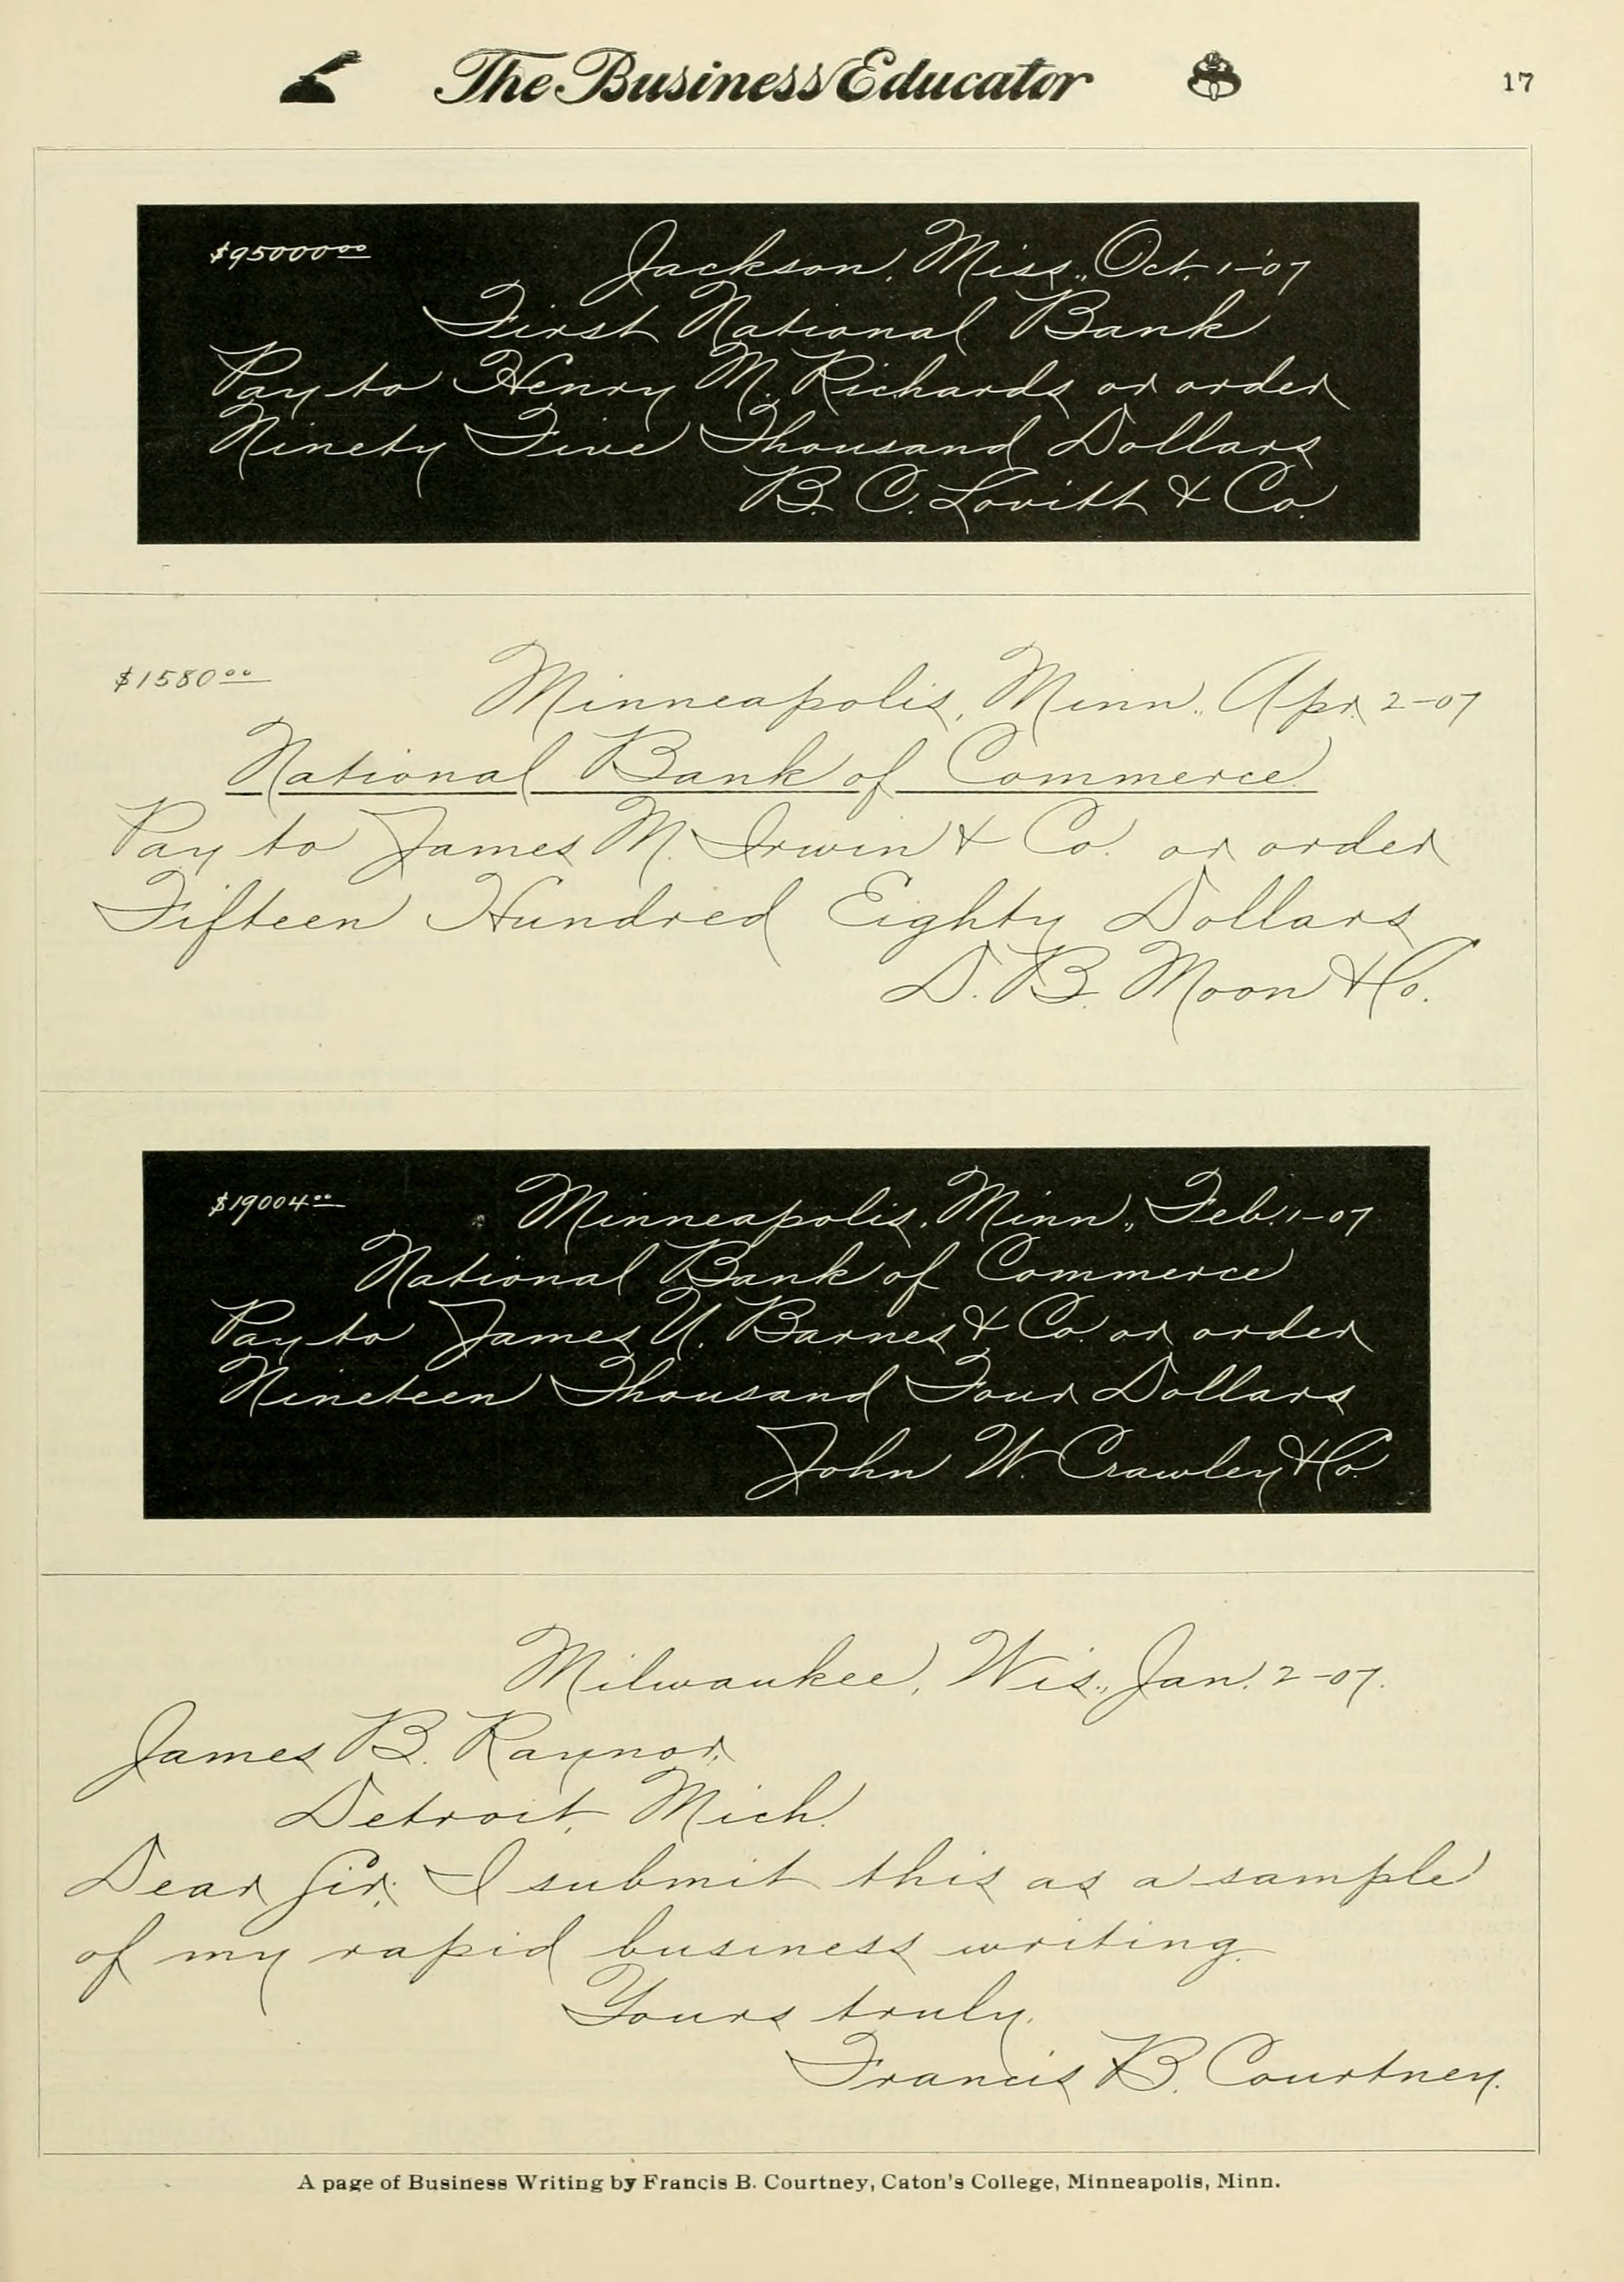 The Business Educator
17
$95000 00
Jackson, Miss., Oct. 1-'07
First National Bank
Pay to Henry M. Richards or order
Ninety Five Thousand Dollars
B. C. Lovitt & Co.
$1580 00
Minneapolis, Minn., Apr. 2-07
National Bank of Commerce
Pay to James M. Irwin & Co. or order
Fifteen Hundred Eighty Dollars
D. B. Moon & Co.
$19004 00
Minneapolis, Minn., Feb. 1-07
National Bank of Commerce
Pay to James U. Barnes & Co. or order
Nineteen Thousand Four Dollars
John W. Crawley & Co.
Milwaukee, Wis., Jan. 2-07.
James B. Raynor,
Detroit, Mich.
Dear Sir: I submit this as a sample
of my rapid business writing.
Yours truly,
Francis B. Courtney.
A page of Business Writing by Francis B. Courtney, Caton's College, Minneapolis, Minn.